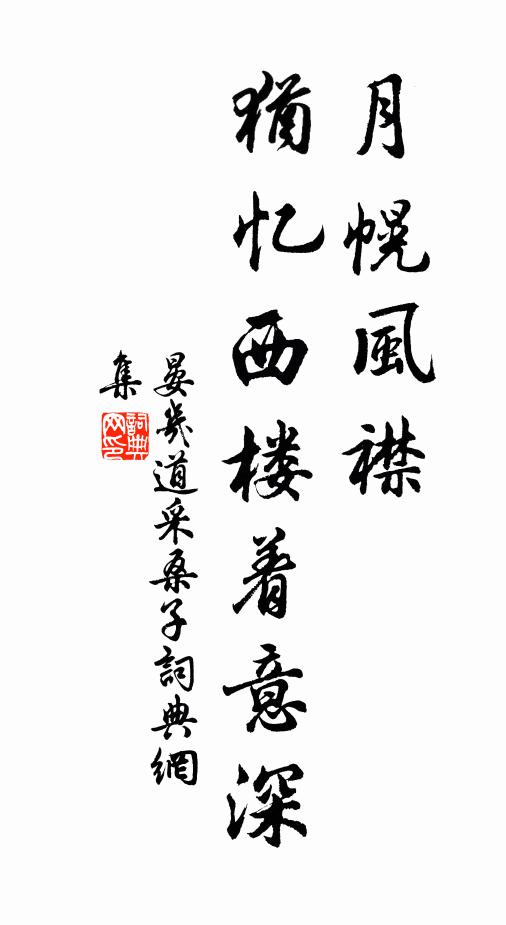 月幌風襟
猶忆西楼着意深
晏幾道采桑子詞典網
集
詞典
网印